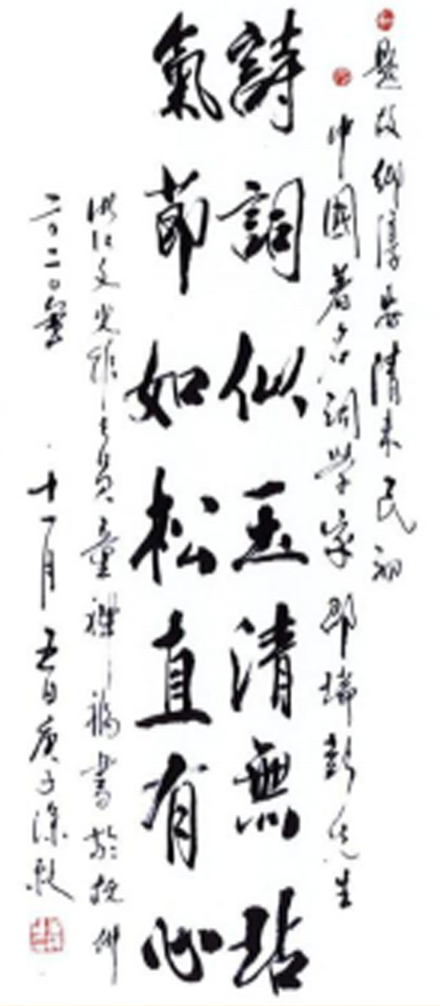 題故鄉淳安清末民初
中國著名詞學家邵瑞彭先生
詩詞似玉清無玷
氣節如松直有心
浙江文史館員童禪福書於杭州
二〇二〇年 十一月五日庚子深秋